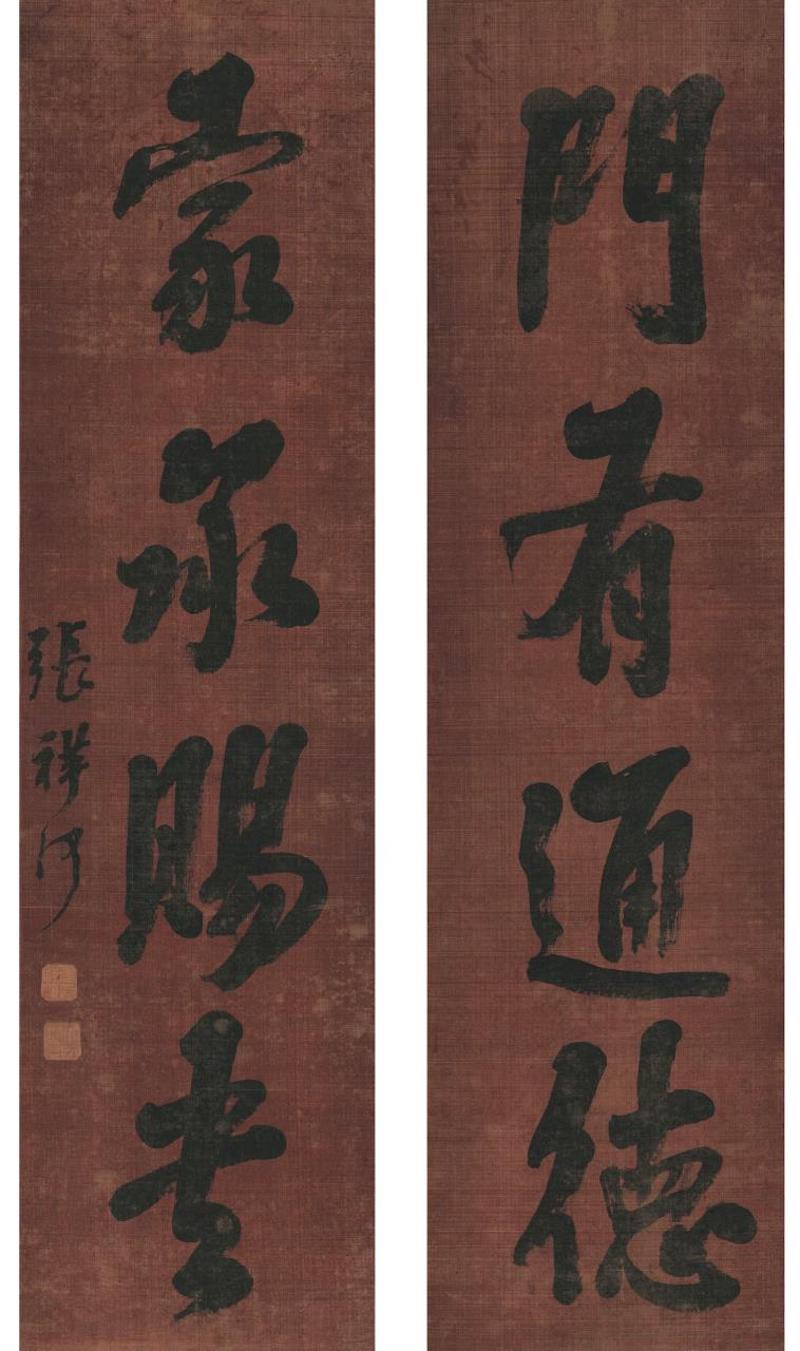 門有通德
家承賜書
張祥河